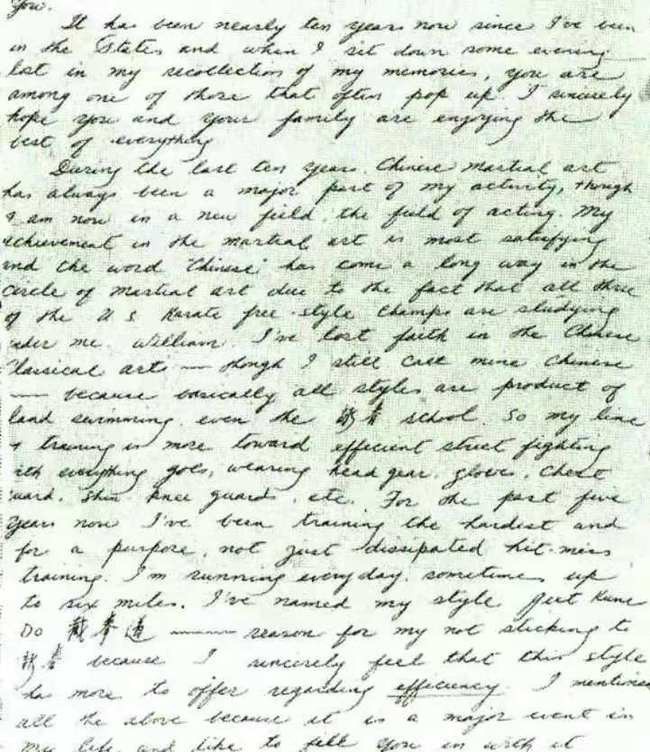 You.
It has been nearly ten years now since I've been
in the States and when I sit down some evening
lost in my recollection of my memories, you are
among one of those that often pop up. I sincerely
hope you and your family are enjoying the
best of everything
During the last ten years, Chinese martial art
has always been a major part of my activity, though
I am now in a new field, the field of acting. My
achievement in the martial art is most satisfying
and the word "Chinese" has come a long way in the
circle of martial art due to the fact that all three
of the U.S. Karate free-style champs are studying
under me. William, I've lost faith in the Chinese
classical arts — though I still call mine Chinese
— because basically all styles are product of
land swimming, even the 詠春 school. So my line
of training is more toward efficient street fighting
with everything goes, wearing head gear, gloves, chest
guard, shin knee guards, etc. For the past five
years now I've been training the hardest and
for a purpose, not just dissipated hit-miss
training. I'm running everyday, sometimes up
to six miles. I've named my style Jeet Kune
Do 截拳道 — reason for my not sticking to
詠春 because I sincerely feel that this style
has more to offer regarding efficiency. I mentioned
all the above because it is a major event in
my life, and like to fill you in with it